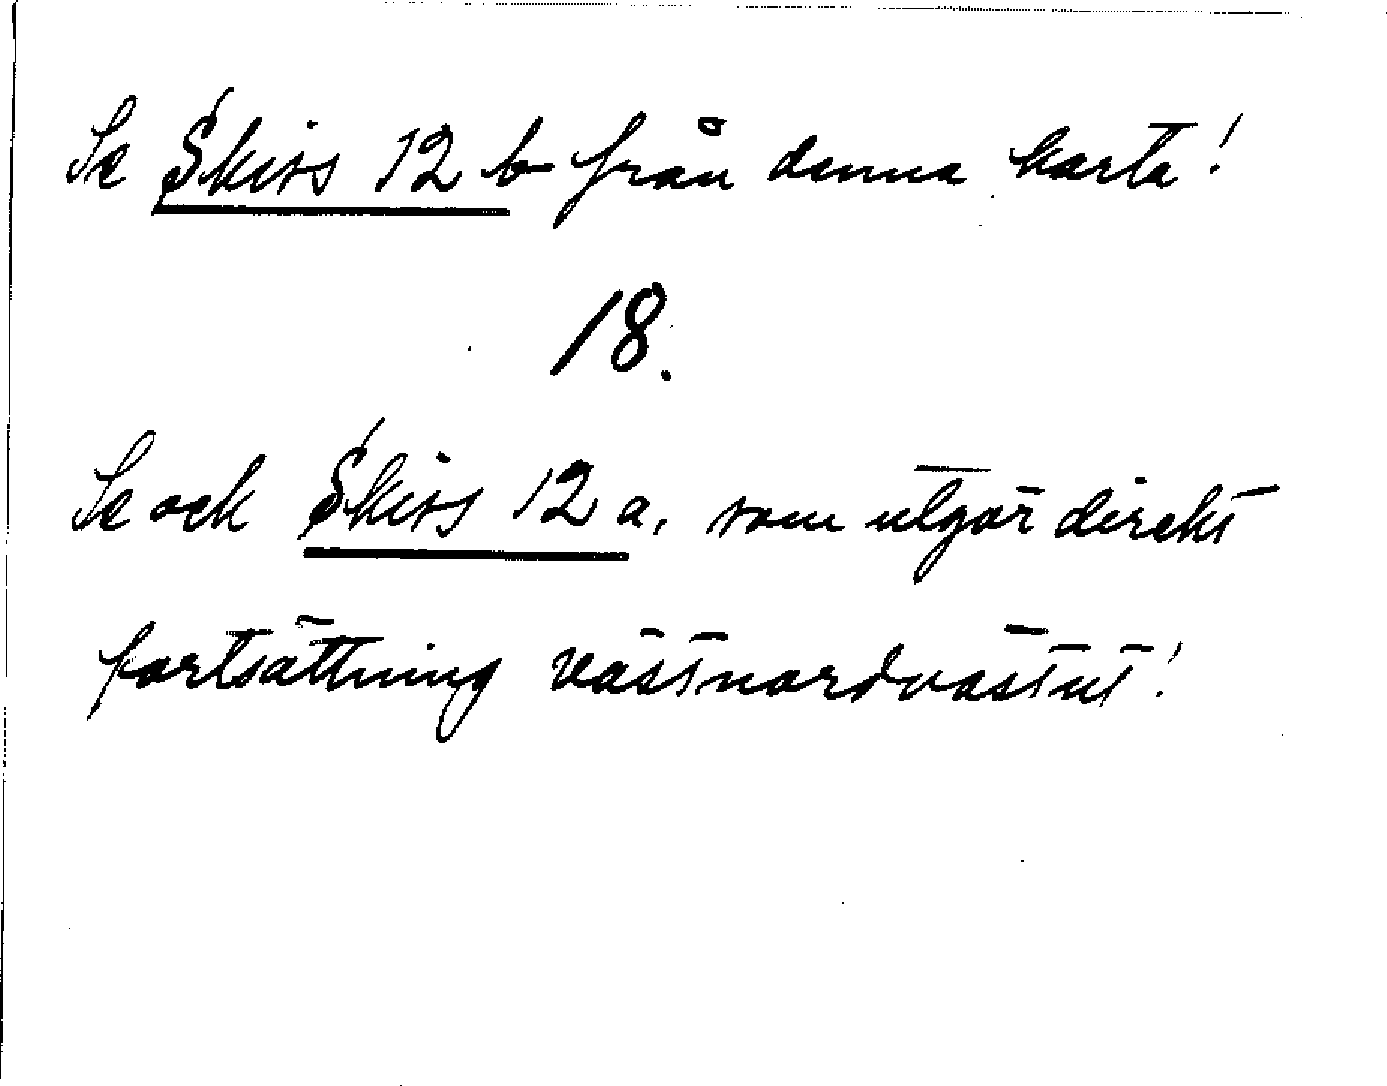 Se Skiss 12 b från denna karta!
18.
Se ock Skiss 12 a, som utgör direkt
fortsättning västnordvästut!